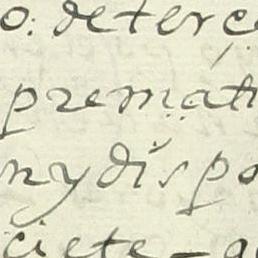 o. deterc
premáti
nydispo
ciete-